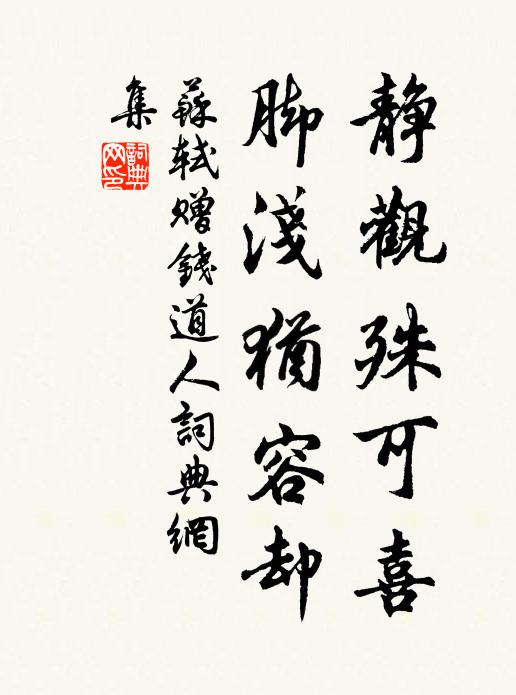 静觀殊可喜
脚淺猶容却
蘇軾贈錢道人詞典網
集
詞典
网印